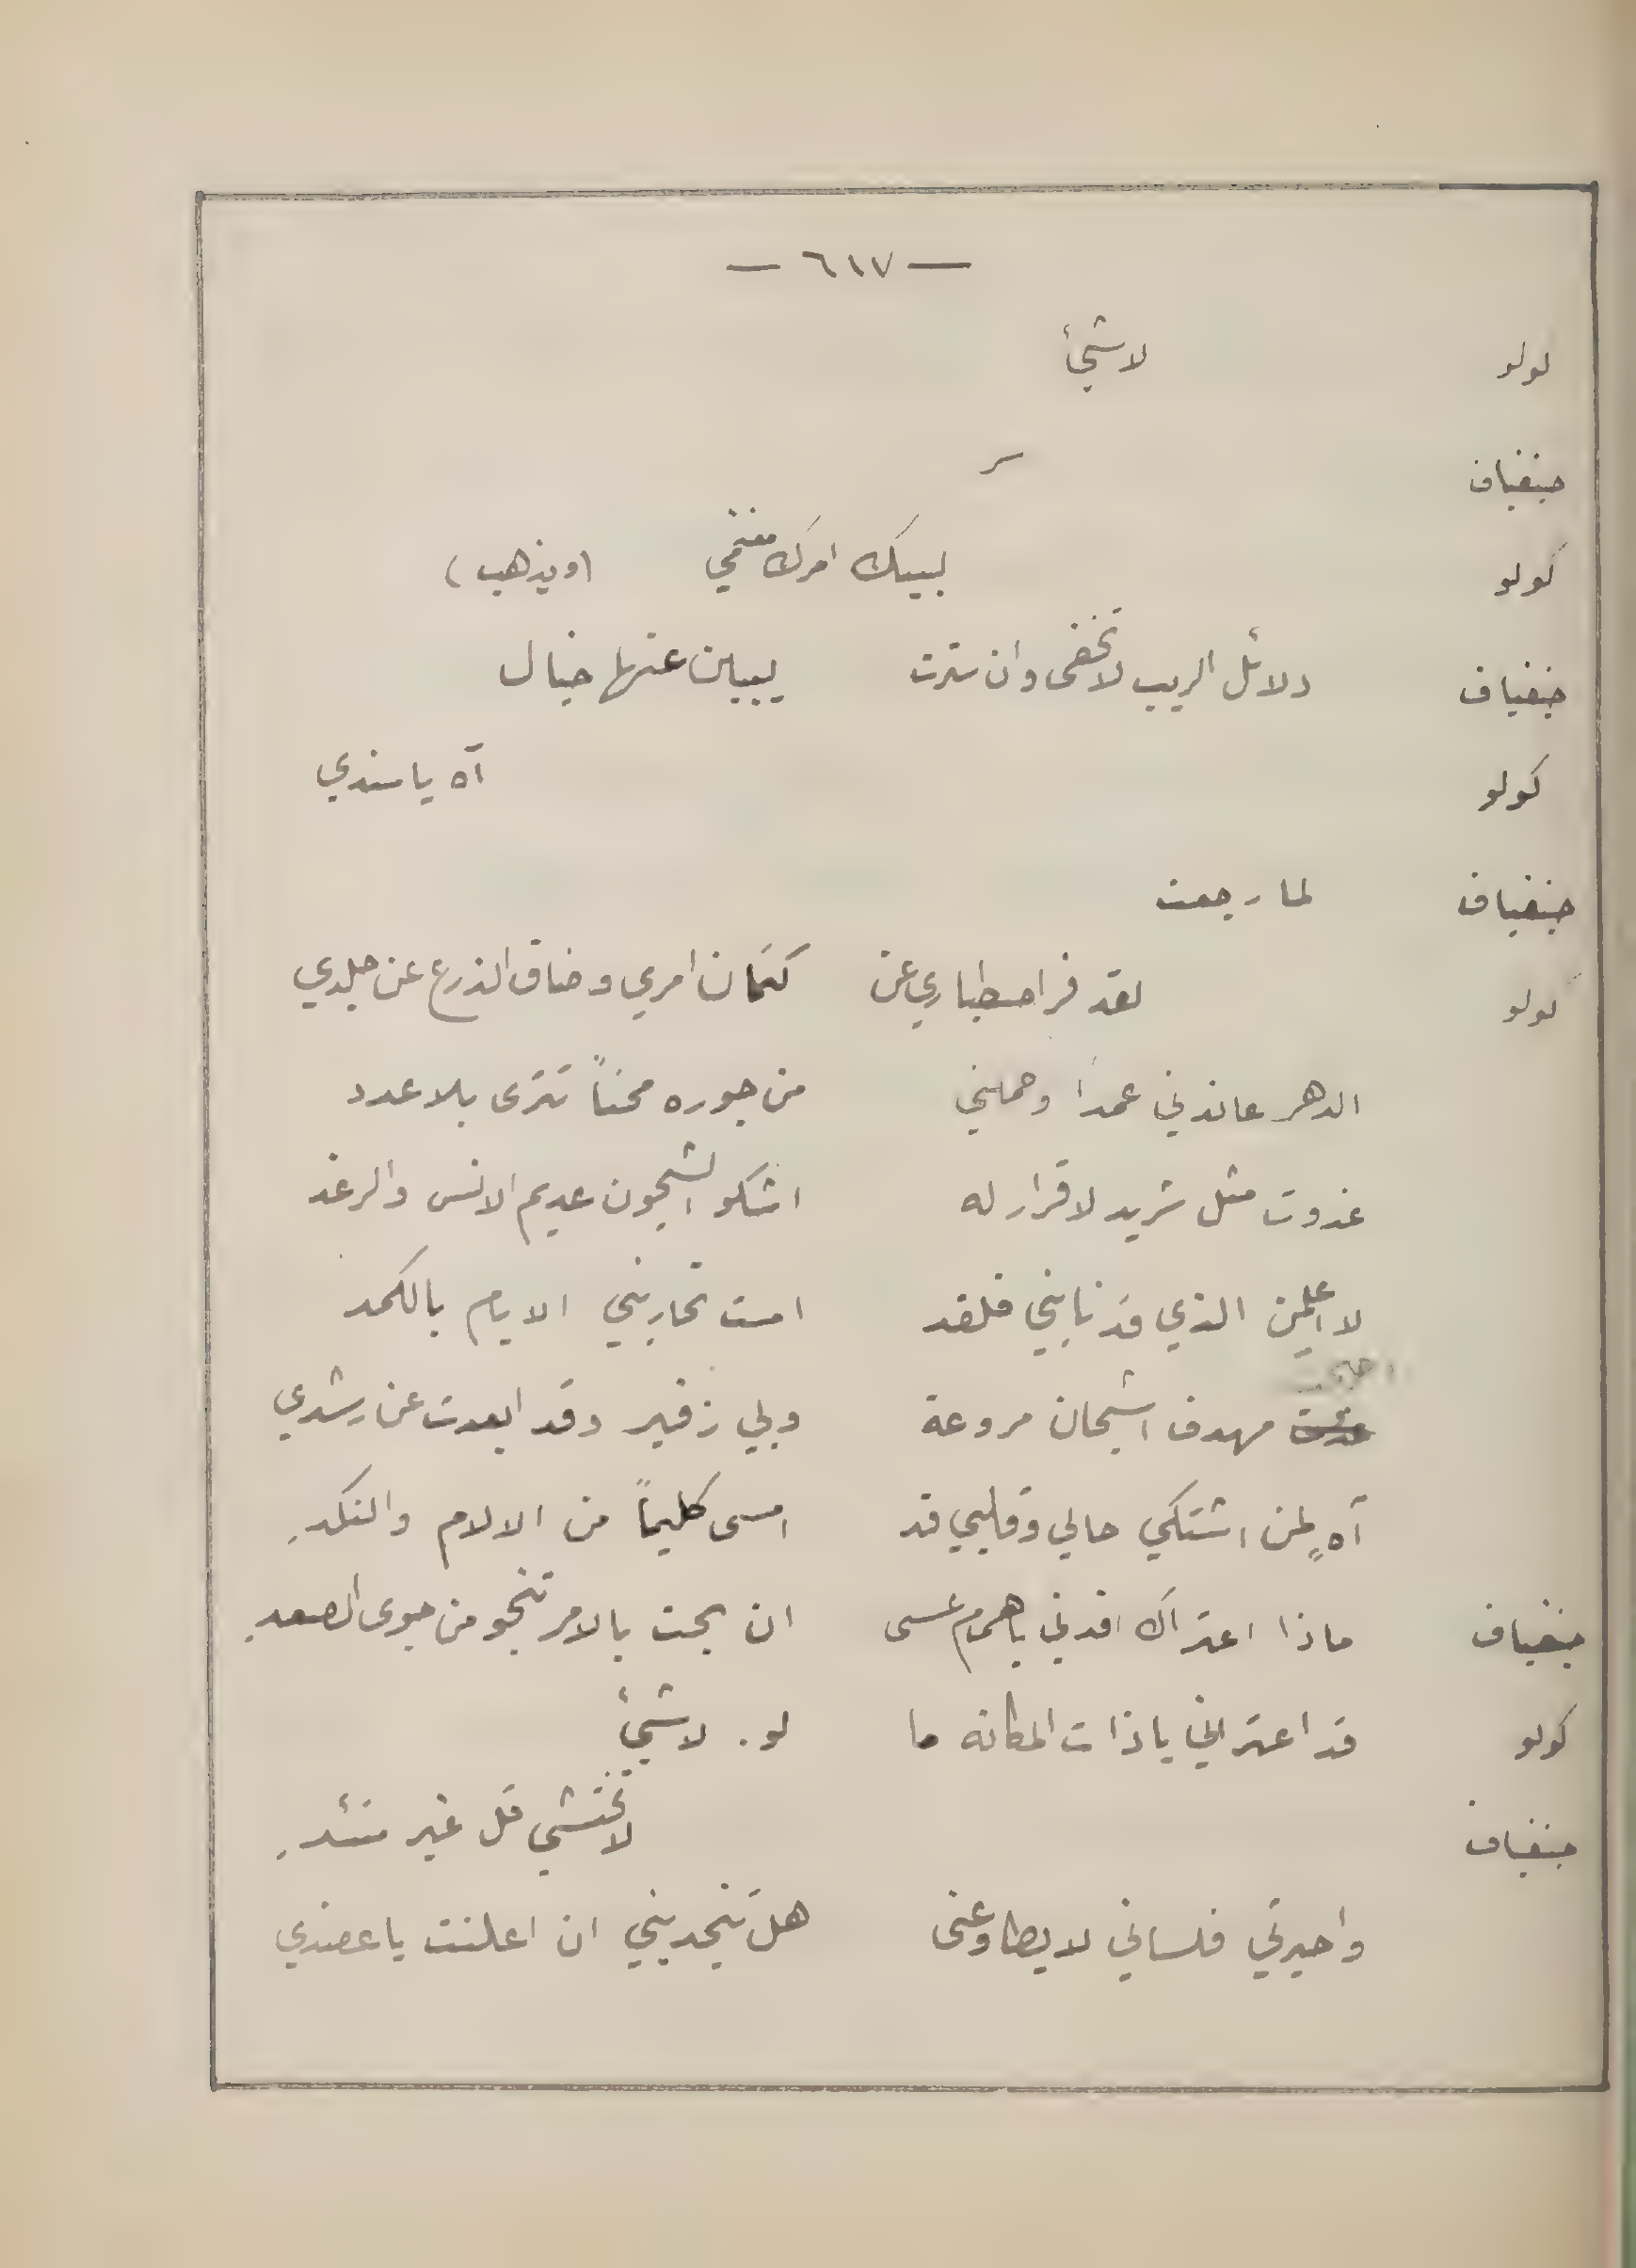 — ٦١٧ —
لولو لا شيئ
جنفياف سر
كولو لبيك امرك مغنمي (ويذهب)
جنفياف دلائل الريب لا تخفى وان سترت يبيان عنها خيال
كولو آه يا سندي
جنفياف لما رجعت
كولو لقد فر اصطباري عن كتمان امري وضاق الذرع عن جلدي
الدهر عاندني عمداً وحملني من جوره محناً تترى بلا عدد
غدوت مثل شريد لا قرار له اشكو الشجون عديم الانس والرغد
لا اعلمن الذي قد نابني فلقد امست تحاربني الايام بالكمد
مهدف اشجان مروعة وبي زفير وقد ابعدت عن رشدي
آهٍ لمن اشتكي حالي وقلبي قد امسى كليماً من الالام والنكدِ
جنفياف ماذا اعتراك افدني يا همام عسى ان بحت بالامر تنجو من جوى الصعدِ
كولو قد اعتراني يا ذات المكانه ما لو. لا شيئ
جنفياف لا تختشي قل غير متئدِ
واحيرتي فلساني لا يطاوعنى هل تنجديني ان اعلنت يا عضدي